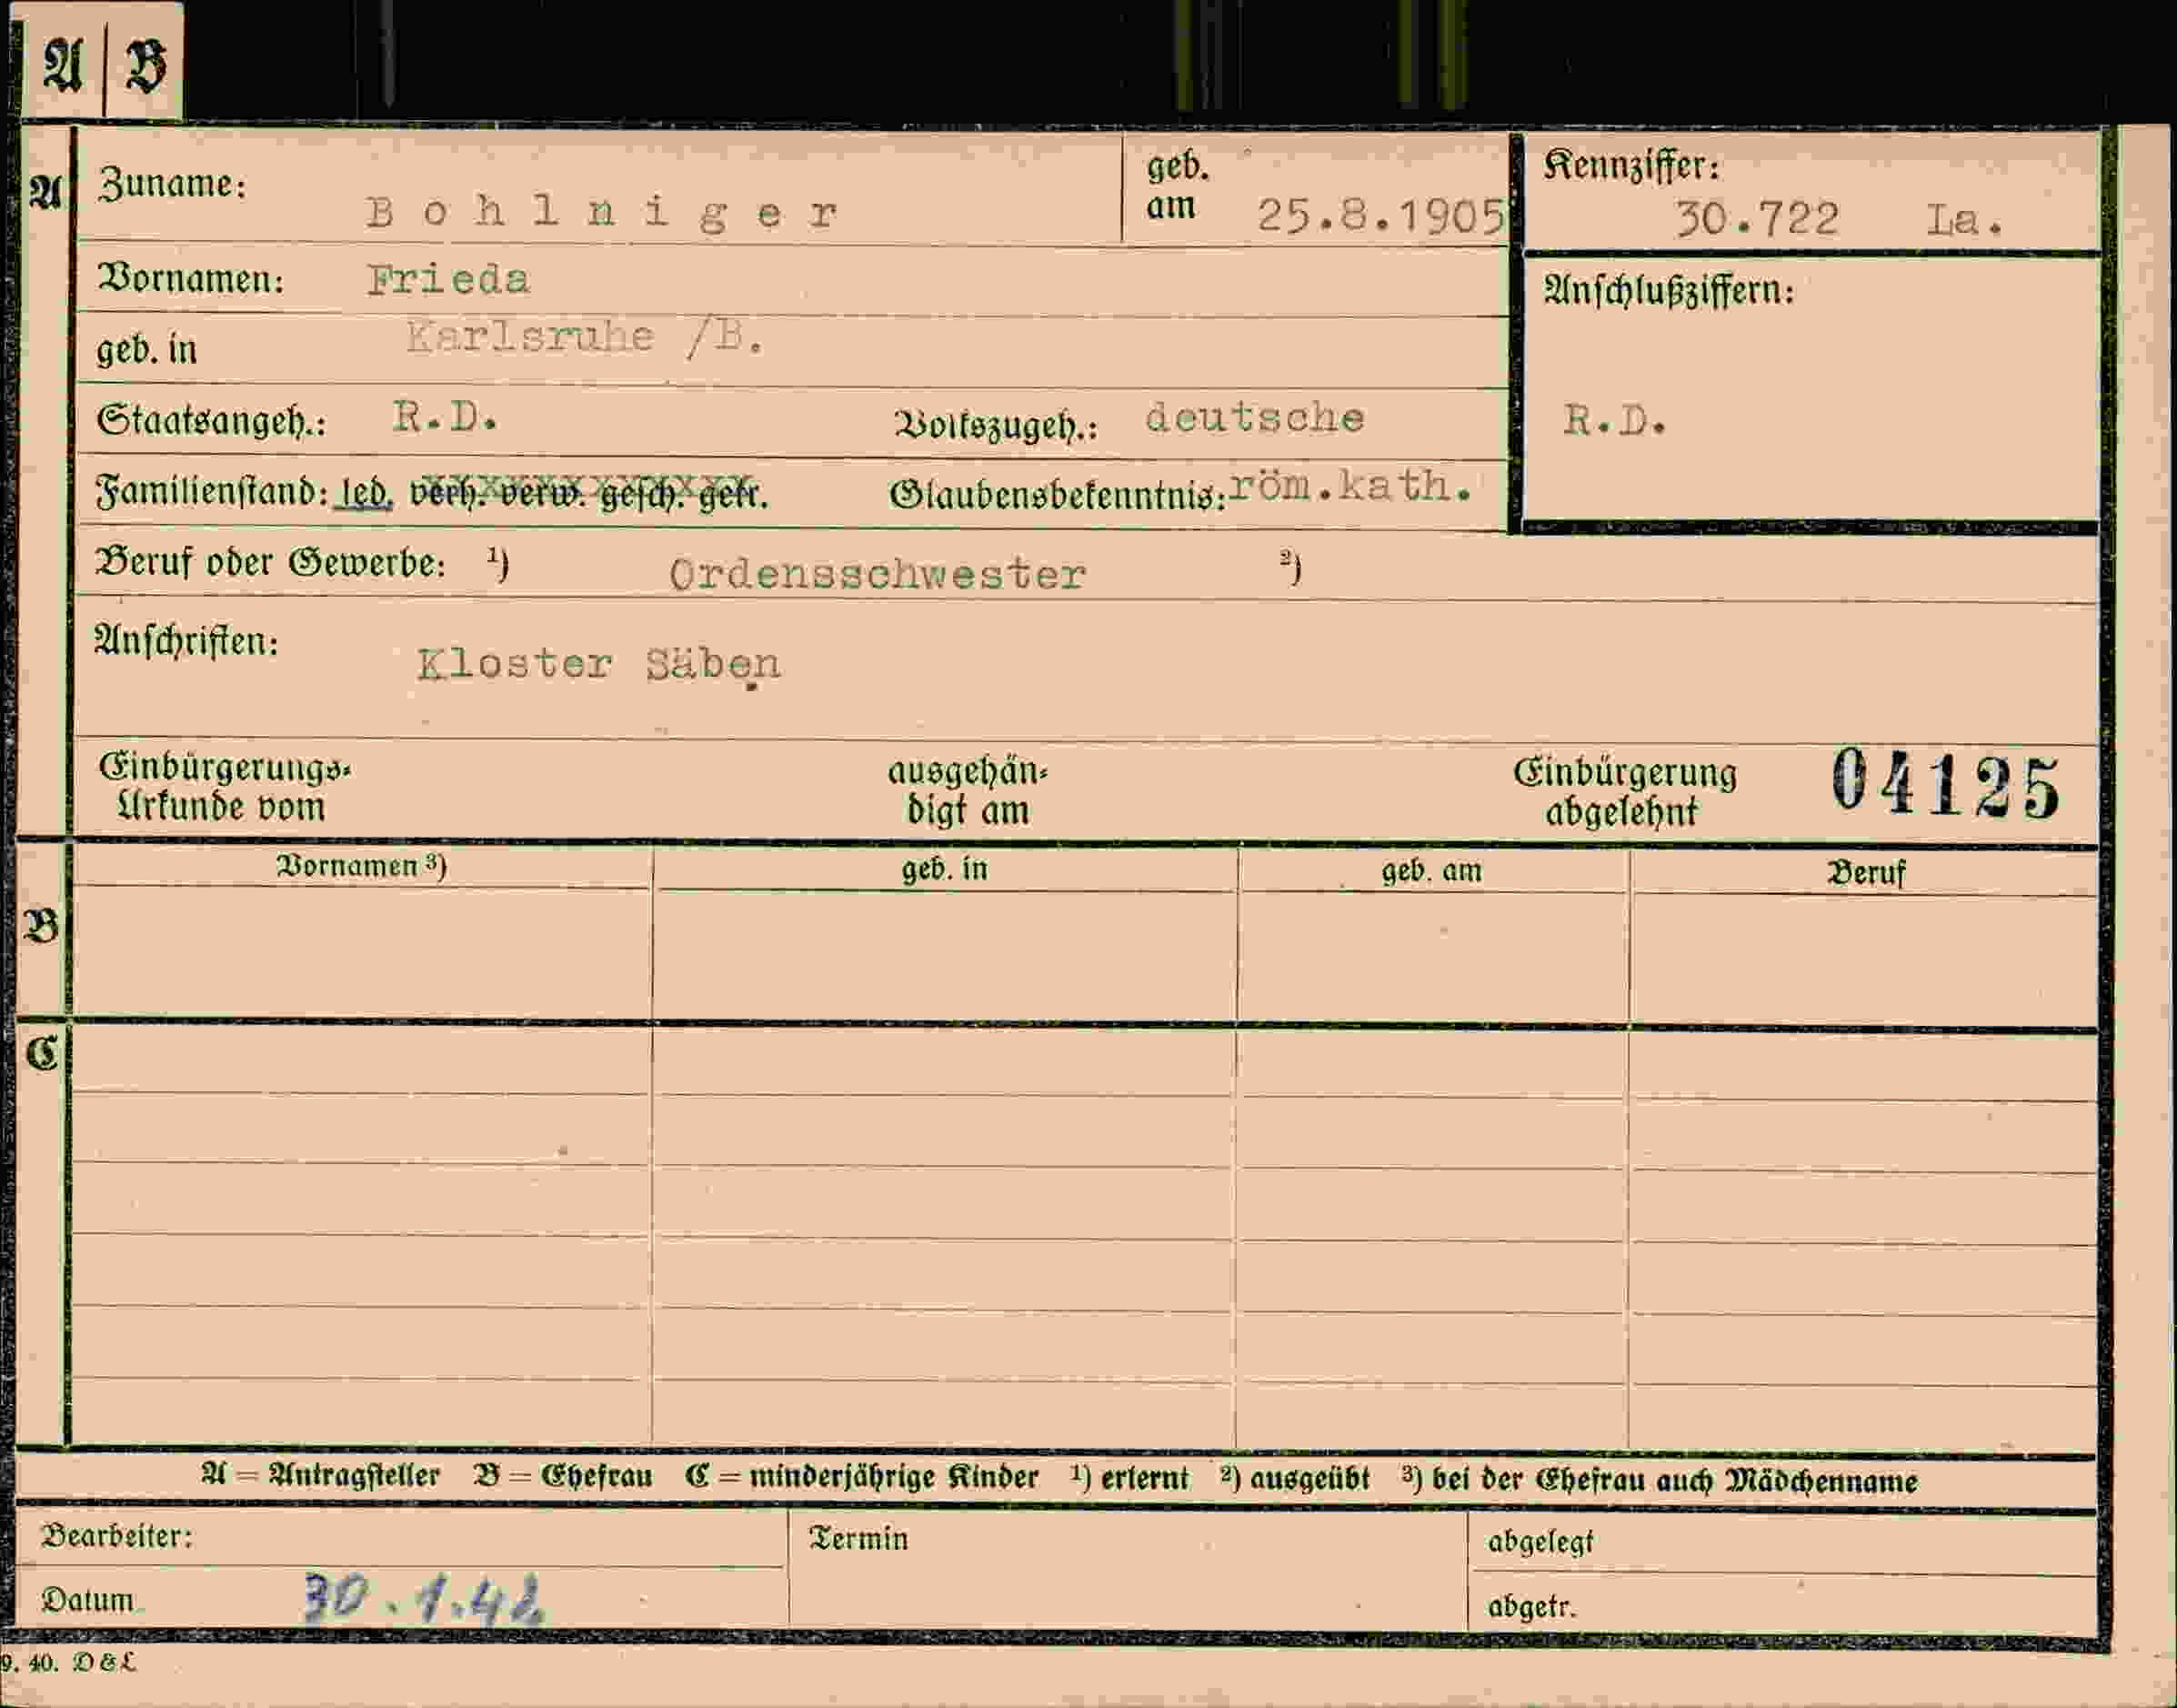 A | B
A Zuname: Bohlniger geb. am 25.8.1905 Kennziffer: 30.722 La.
Vornamen: Frieda Anschlußziffern:
geb. in Karlsruhe /B.
Staatsangeh.: R.D. Volkszugeh.: deutsche R.D.
Familienstand: led. verh. verw. gesch. getr. Glaubensbekenntnis: röm.kath.
Beruf oder Gewerbe: ¹) Ordensschwester ²)
Anschriften: Kloster Säben
Einbürgerungs- ausgehän- Einbürgerung 04125
Urkunde vom digt am abgelehnt
Vornamen ³) geb. in geb. am Beruf
B
C
A = Antragsteller B = Ehefrau C = minderjährige Kinder ¹) erlernt ²) ausgeübt ³) bei der Ehefrau auch Mädchenname
Bearbeiter: Termin abgelegt
Datum 30.1.42 abgetr.
9. 40. D & L